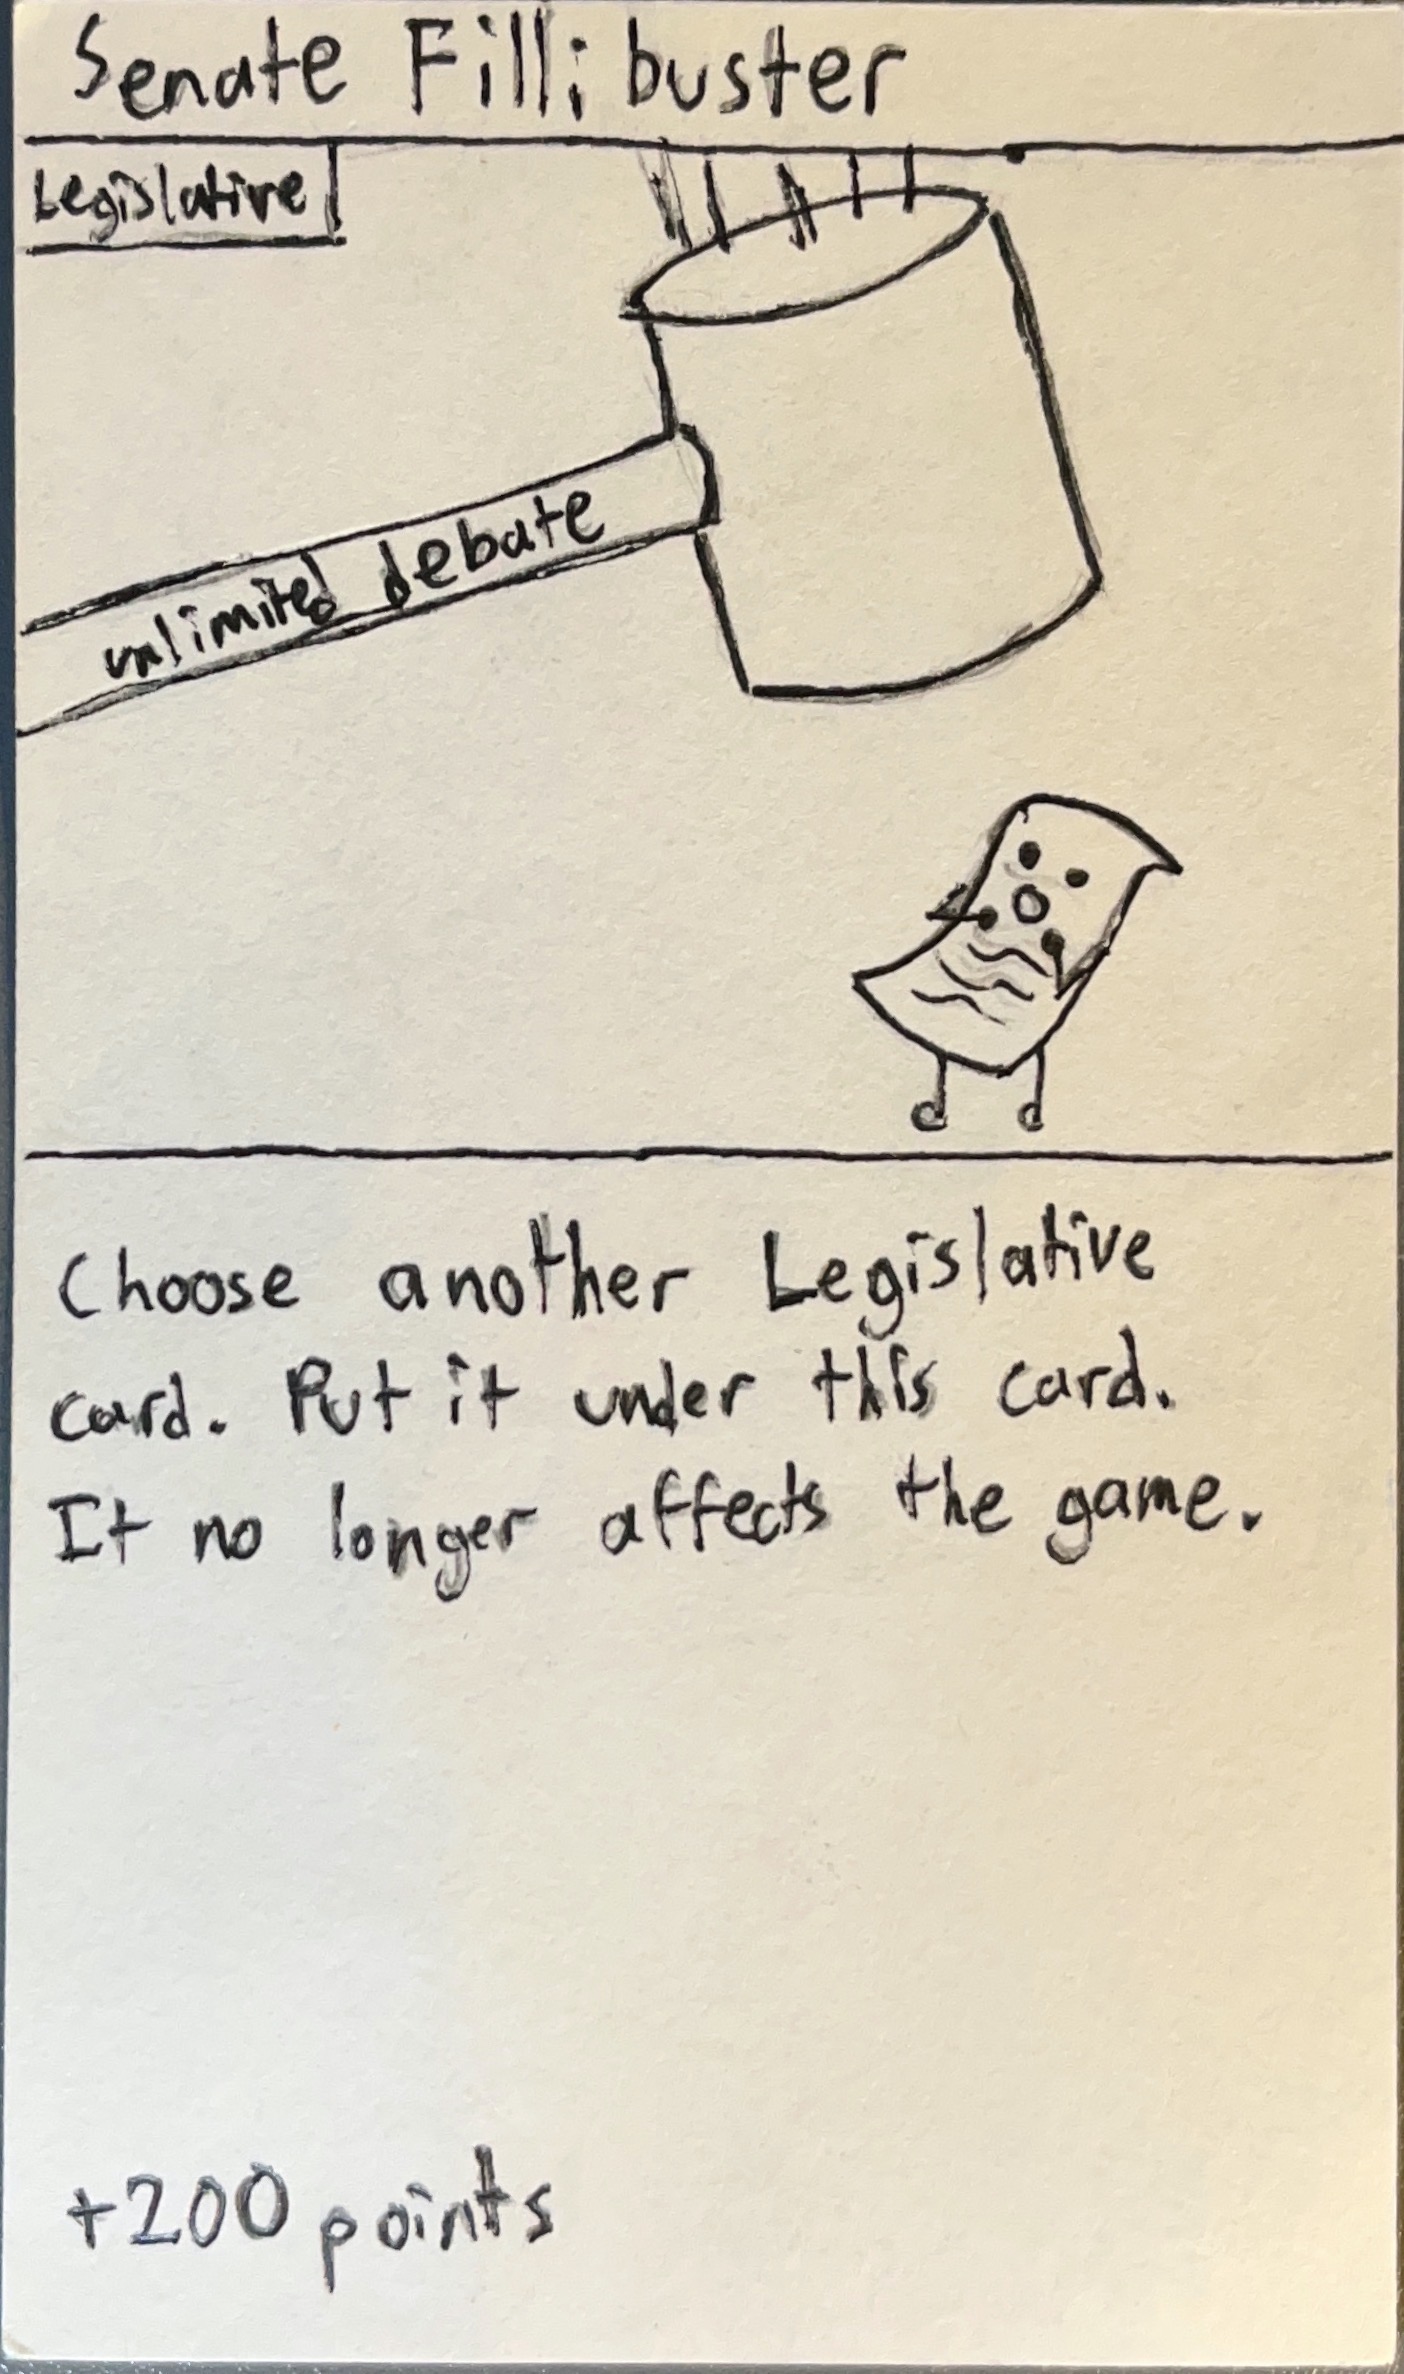 Senate Fillibuster
Legislative
unlimited debate
Choose another Legislative
card. Put it under this card.
It no longer affects the game.
+200 points